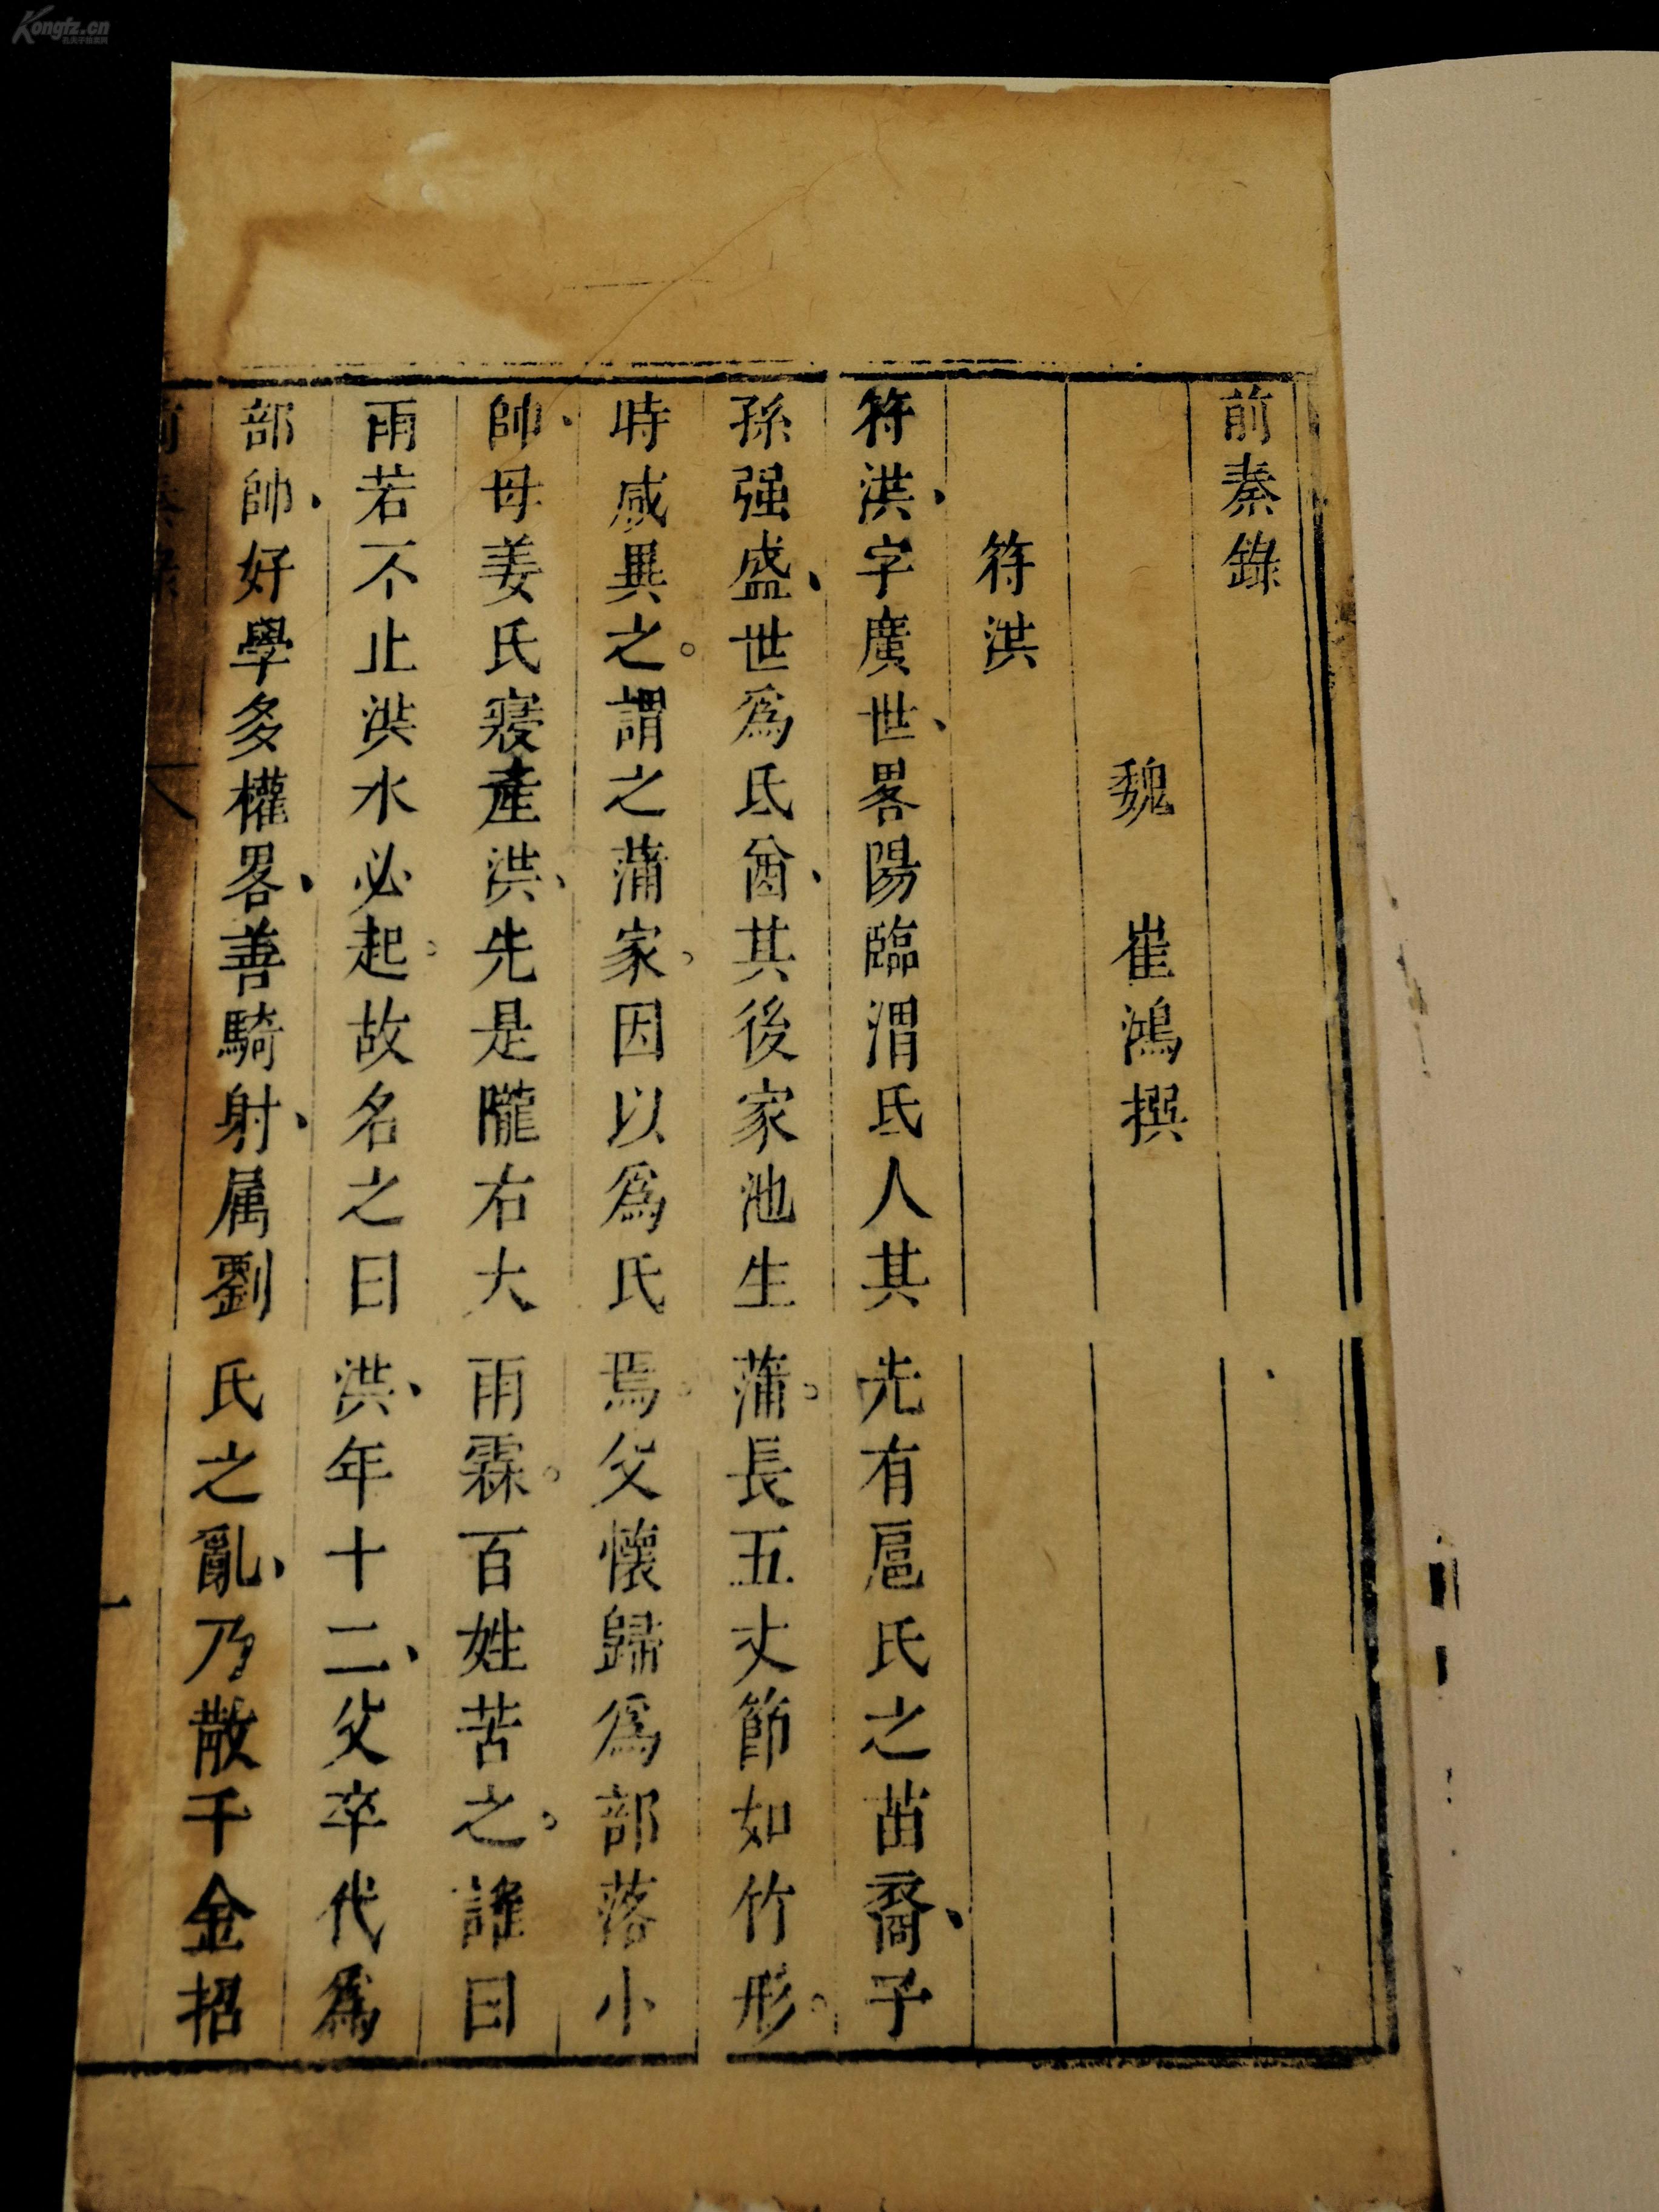 前秦錄
魏 崔鴻撰
符洪
符洪、字廣世、畧陽臨渭氐人其先有扈氏之苗裔、子
孫强盛、世爲氐酋、其後家池生蒲。長五丈節如竹形。
時咸異之。謂之蒲家。因以爲氏焉。父懷歸爲部落小
帥、母姜氏寢產洪、先是隴右大雨霖。百姓苦之。謠曰
雨若不止洪水必起。故名之曰洪、年十二、父卒代爲
部帥、好學多權畧、善騎射、属劉氏之亂、乃散千金招
前秦錄
一
Kongfz.cn